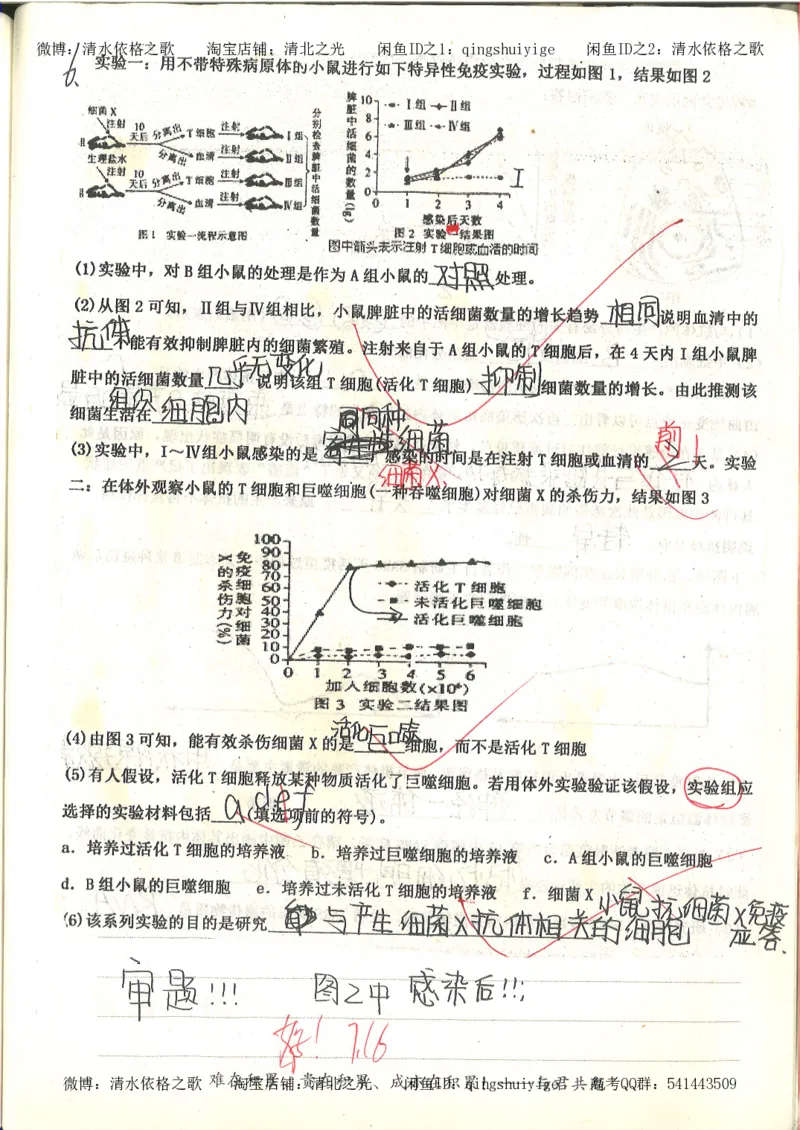 微博：清水依格之歌 淘宝店铺：清北之光 闲鱼ID之1：qingshuiyige 闲鱼ID之2：清水依格之歌
6.
实验一：用不带特殊病原体的小鼠进行如下特异性免疫实验，过程如图1，结果如图2
细菌X
注射 10天后 分离出 T细胞 注射 Ⅰ组
分离出 血清 注射 Ⅱ组
生理盐水
注射 10天后 分离出 T细胞 注射 Ⅲ组
分离出 血清 注射 Ⅳ组
分别检查脾脏中活细菌数量
图1 实验一流程示意图
脾脏中活细菌的数量(lg)
10 8 6 4 2 0
Ⅰ组 Ⅱ组
Ⅲ组 Ⅳ组
I
1 2 3 4
感染后天数
图2 实验一结果图
图中箭头表示注射T细胞或血清的时间
(1)实验中，对B组小鼠的处理是作为A组小鼠的 对照 处理。
(2)从图2可知，Ⅱ组与Ⅳ组相比，小鼠脾脏中的活细菌数量的增长趋势 相同 说明血清中的
抗体 能有效抑制脾脏内的细菌繁殖。注射来自于A组小鼠的T细胞后，在4天内Ⅰ组小鼠脾
脏中的活细菌数量 几乎无变化 说明该组T细胞(活化T细胞) 抑制 细菌数量的增长。由此推测该
细菌生活在 组织细胞内
同种
(3)实验中，Ⅰ~Ⅳ组小鼠感染的是 细菌 感染的时间是在注射T细胞或血清的 2 天。实验
细菌X、
前1
二：在体外观察小鼠的T细胞和巨噬细胞(一种吞噬细胞)对细菌X的杀伤力，结果如图3
免疫细胞对细菌X的杀伤力(%)
100 90 80 70 60 50 40 30 20 10 0
活化T细胞
未活化巨噬细胞
活化巨噬细胞
0 1 2 3 4 5 6
加入细胞数(×10⁶)
图3 实验二结果图
(4)由图3可知，能有效杀伤细菌X的是 活化巨噬 细胞，而不是活化T细胞
(5)有人假设，活化T细胞释放某种物质活化了巨噬细胞。若用体外实验验证该假设，实验组应
选择的实验材料包括 a d e f (填选项前的符号)。
a．培养过活化T细胞的培养液 b．培养过巨噬细胞的培养液 c．A组小鼠的巨噬细胞
d．B组小鼠的巨噬细胞 e．培养过未活化T细胞的培养液 f．细菌X
小鼠抗细菌X免疫应答、
(6)该系列实验的目的是研究 与产生细菌X抗体相关的细胞
审题!!! 图2中 感染后!!;
好! 7.16
难在积累、贵在积累、成功在积累！
微博：清水依格之歌 淘宝店铺：清北之光 闲鱼ID：qingshuiyige 与君共勉 考QQ群：541443509